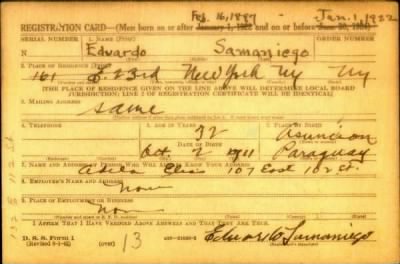 Feb. 16, 1897 Jan. 1, 1922
REGISTRATION CARD—(Men born on or after January 1, 1922 and on or before June 30, 1924)
SERIAL NUMBER 1. NAME (Print) ORDER NUMBER
N Eduardo Samaniego
2. PLACE OF RESIDENCE (Print)
161 E. 23rd New York Ny Ny
[THE PLACE OF RESIDENCE GIVEN ON THE LINE ABOVE WILL DETERMINE LOCAL BOARD
JURISDICTION; LINE 2 OF REGISTRATION CERTIFICATE WILL BE IDENTICAL]
3. MAILING ADDRESS
Same
4. TELEPHONE 5. AGE IN YEARS 6. PLACE OF BIRTH
32 Asuncion
DATE OF BIRTH
Oct 2 1911 Paraguay
7. NAME AND ADDRESS OF PERSON WHO WILL ALWAYS KNOW YOUR ADDRESS
107 East 102 St.
8. EMPLOYER'S NAME AND ADDRESS
Non
9. PLACE OF EMPLOYMENT OR BUSINESS
Non
I AFFIRM THAT I HAVE VERIFIED ABOVE ANSWERS AND THAT THEY ARE TRUE.
D. S. S. Form 1
(over) 13 Eduardo Samaniego